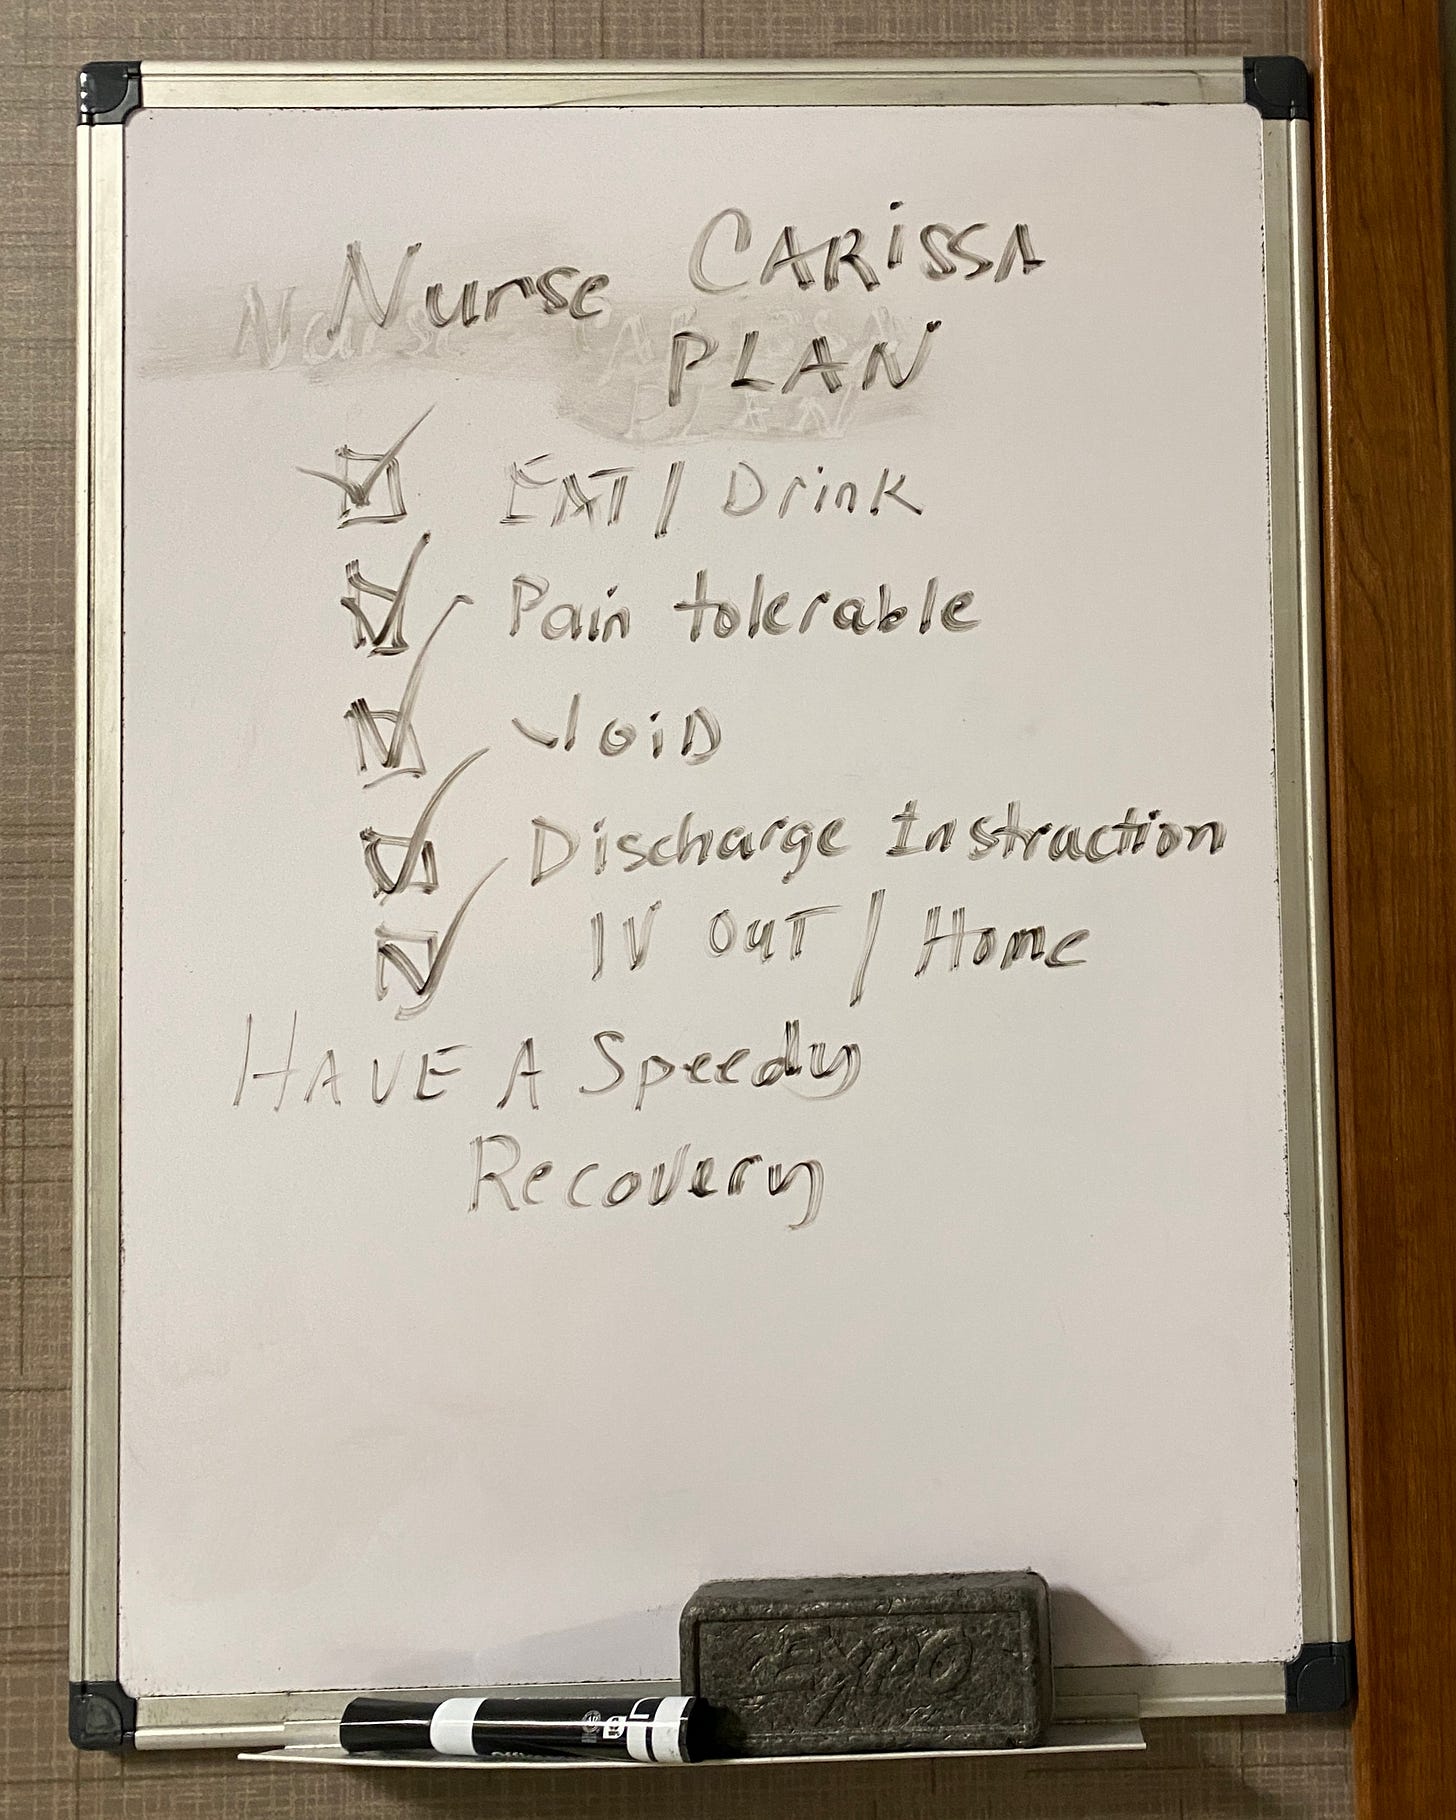 Nurse CARiSSA
PLAN
EAT / Drink
Pain tolerable
VoiD
Discharge Instruction
IV OUT / Home
HAVE A Speedy
Recovery
EXPO